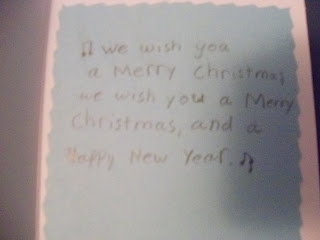 ♫ we wish you
a Merry Christmas,
we wish you a Merry
Christmas, and a
Happy New Year. ♫